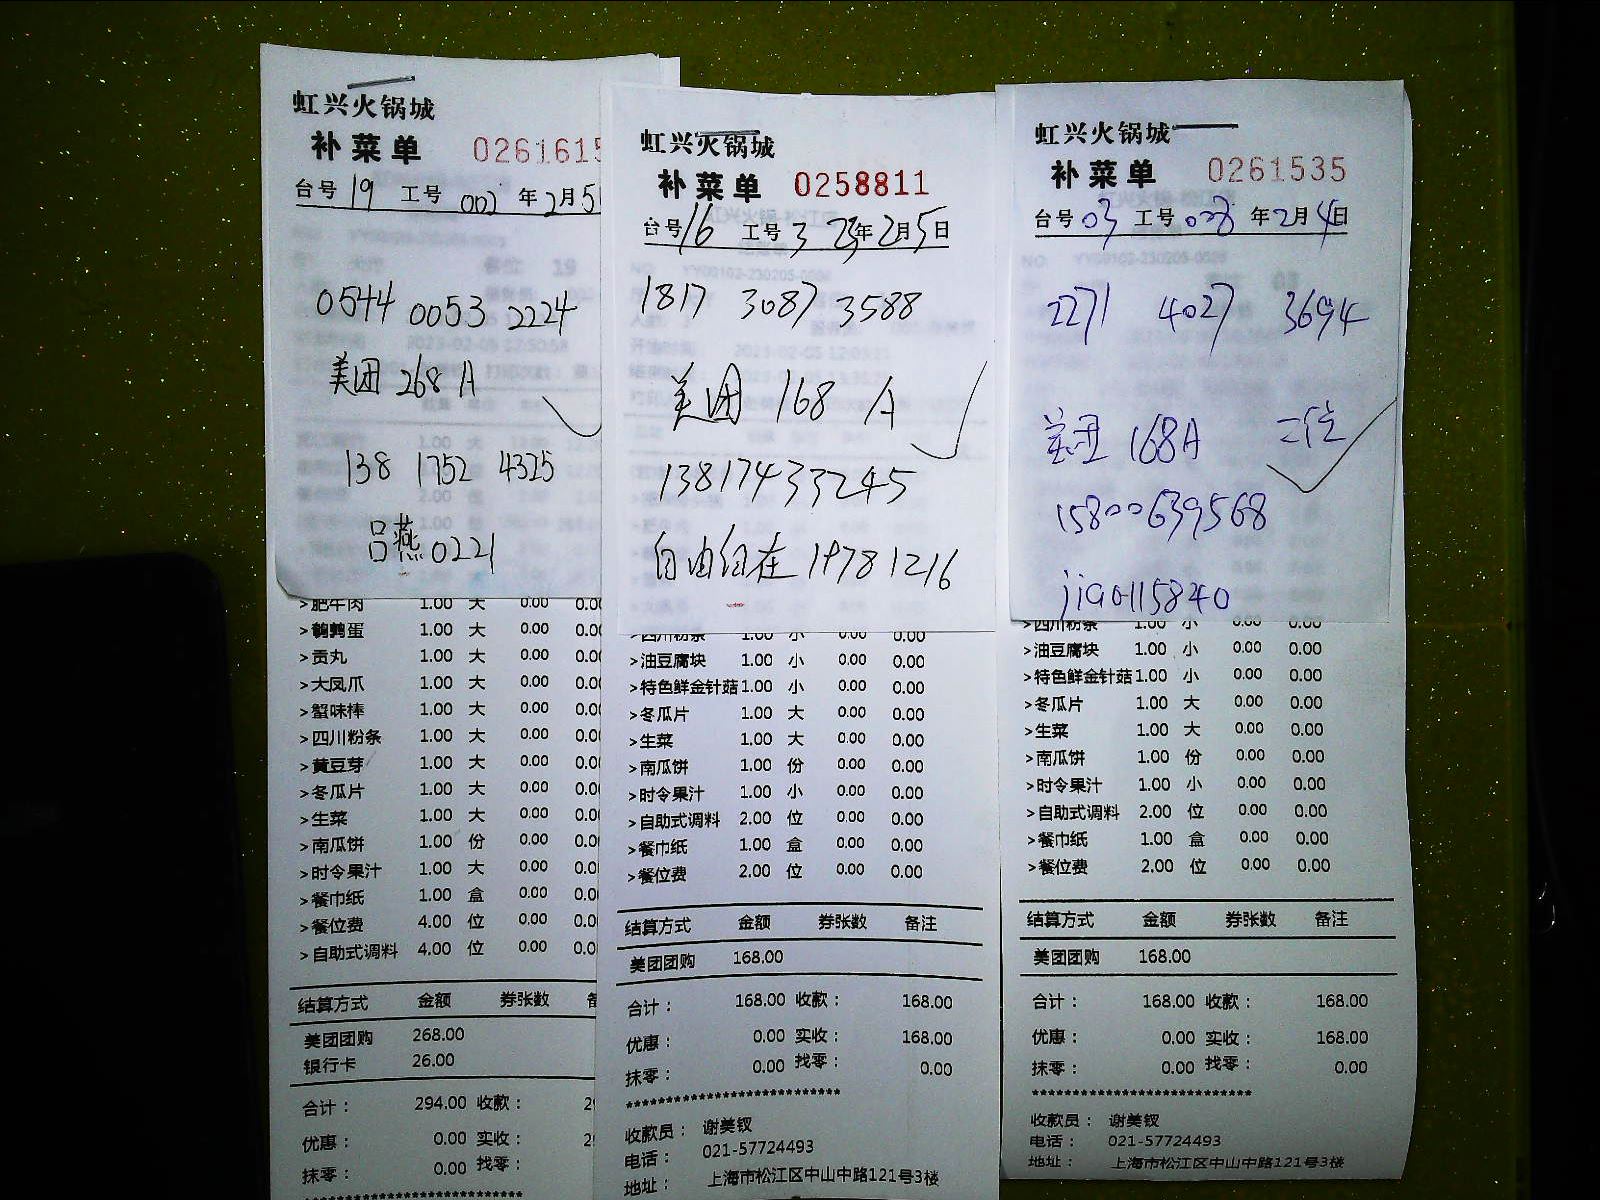 虹兴火锅城
补菜单 0261615
台号 19 工号 002 年2月5
0544 0053 2224
美团 268 A
138 1752 4325
吕燕 0221
>肥牛肉 1.00 大 0.00 0.00
>鹌鹑蛋 1.00 大 0.00 0.00
>贡丸 1.00 大 0.00 0.00
>大凤爪 1.00 大 0.00 0.00
>蟹味棒 1.00 大 0.00 0.00
>四川粉条 1.00 大 0.00 0.00
>黄豆芽 1.00 大 0.00 0.00
>冬瓜片 1.00 大 0.00 0.00
>生菜 1.00 大 0.00 0.00
>南瓜饼 1.00 份 0.00 0.00
>时令果汁 1.00 大 0.00 0.00
>餐巾纸 1.00 盒 0.00 0.00
>餐位费 4.00 位 0.00 0.00
>自助式调料 4.00 位 0.00 0.0
结算方式 金额 券张数
美团团购 268.00
银行卡 26.00
合计： 294.00 收款： 2
优惠： 0.00 实收： 2
抹零： 0.00 找零：
虹兴火锅城
补菜单 0258811
台号 16 工号 3 23年2月5日
1817 3087 3588
美团 168 A
13817433245
自由自在 19781216
>四川粉条 1.00 小 0.00 0.00
>油豆腐块 1.00 小 0.00 0.00
>特色鲜金针菇 1.00 小 0.00 0.00
>冬瓜片 1.00 大 0.00 0.00
>生菜 1.00 大 0.00 0.00
>南瓜饼 1.00 份 0.00 0.00
>时令果汁 1.00 小 0.00 0.00
>自助式调料 2.00 位 0.00 0.00
>餐巾纸 1.00 盒 0.00 0.00
>餐位费 2.00 位 0.00 0.00
结算方式 金额 券张数 备注
美团团购 168.00
合计： 168.00 收款： 168.00
优惠： 0.00 实收： 168.00
抹零： 0.00 找零： 0.00
收款员： 谢美钗
电话： 021-57724493
地址： 上海市松江区中山中路121号3楼
虹兴火锅城
补菜单 0261535
台号 03 工号 008 年2月4日
2271 4027 3694
美团 168A 二位
15800639568
jiao115840
>四川粉条 1.00 小 0.00 0.00
>油豆腐块 1.00 小 0.00 0.00
>特色鲜金针菇 1.00 小 0.00 0.00
>冬瓜片 1.00 大 0.00 0.00
>生菜 1.00 大 0.00 0.00
>南瓜饼 1.00 份 0.00 0.00
>时令果汁 1.00 小 0.00 0.00
>自助式调料 2.00 位 0.00 0.00
>餐巾纸 1.00 盒 0.00 0.00
>餐位费 2.00 位 0.00 0.00
结算方式 金额 券张数 备注
美团团购 168.00
合计： 168.00 收款： 168.00
优惠： 0.00 实收： 168.00
抹零： 0.00 找零： 0.00
收款员： 谢美钗
电话： 021-57724493
地址： 上海市松江区中山中路121号3楼